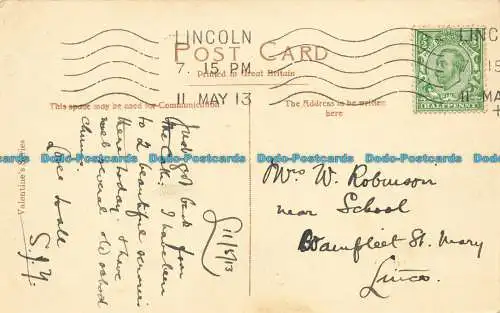 LINCOLN
7. 15 PM
11 MAY 13
LINCO
15
11 MA
HALFPENNY
POST CARD
Printed in Great Britain
This space may be used for Communication
The Address to be written
here
Valentine's Series
L 11/5/13
Just got back from
the Cath: I have been
to 2 beautiful services
there today: & have
met several old school
chums.
Love to all
S.J.Y.
Mrs W. Robinson
near School
Wainfleet St. Mary
Lincs.
Dodo-Postcards Dodo-Postcards Dodo-Postcards Dodo-Postcards Dodo-Postcards